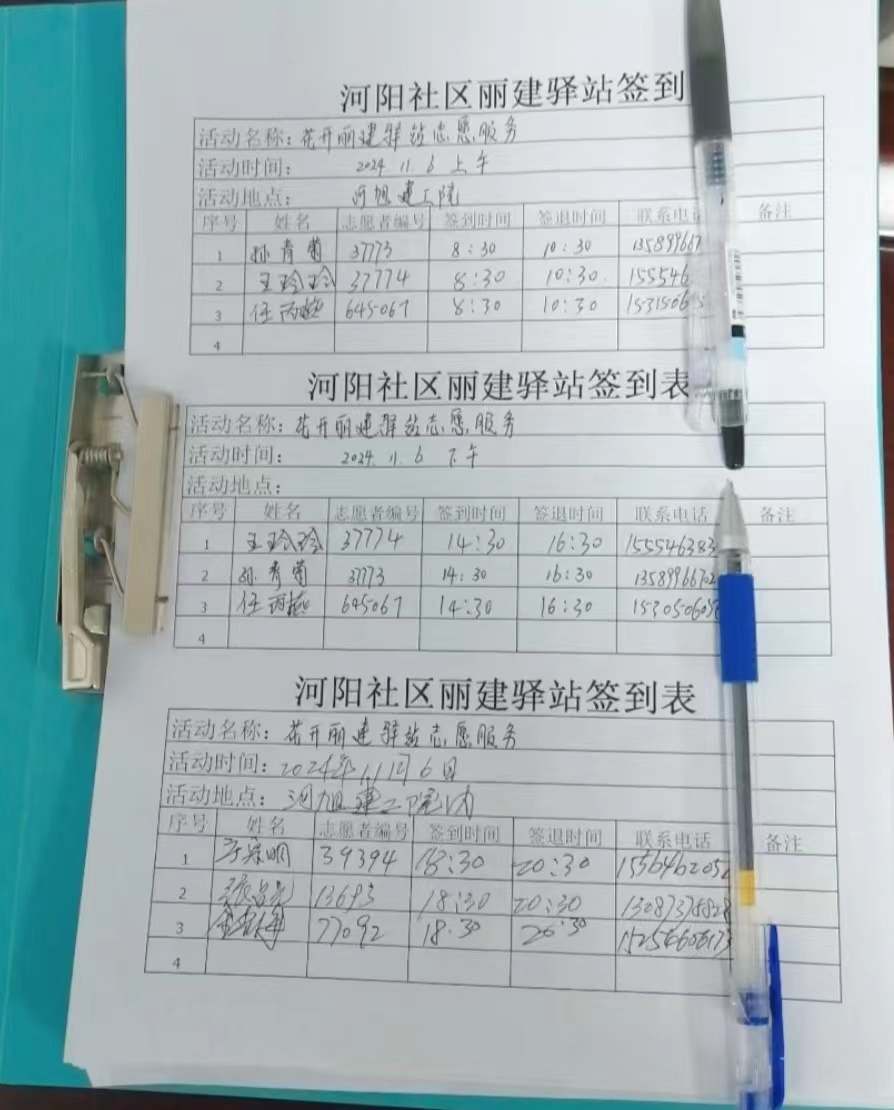 河阳社区丽建驿站签到
活动名称：花开丽建驿站志愿服务
活动时间： 2024.11.6 上午
活动地点： 河旭建工院
序号 姓名 志愿者编号 签到时间 签退时间 联系电话 备注
1 孙青菊 37773 8:30 10:30 135899667
2 王玲玲 37774 8:30 10:30. 155546
3 任丙 645067 8:30 10:30
4
河阳社区丽建驿站签到表
活动名称：花开丽建驿站志愿服务
活动时间： 2024.11.6 下午
活动地点：
序号 姓名 志愿者编号 签到时间 签退时间 联系电话 备注
1 王玲玲 37774 14:30 16:30 155546383
2 孙青菊 37773 14:30 16:30 1358996670
3 任丙 645067 14:30 16:30
4
河阳社区丽建驿站签到表
活动名称：花开丽建驿站志愿服务
活动时间：2024年11月6日
活动地点：河旭建工院内
序号 姓名 志愿者编号 签到时间 签退时间 联系电话 备注
1 39394 18:30 20:30 1556462052
2 13693 18:30 20:30
3 77092 18:30 20:30
4